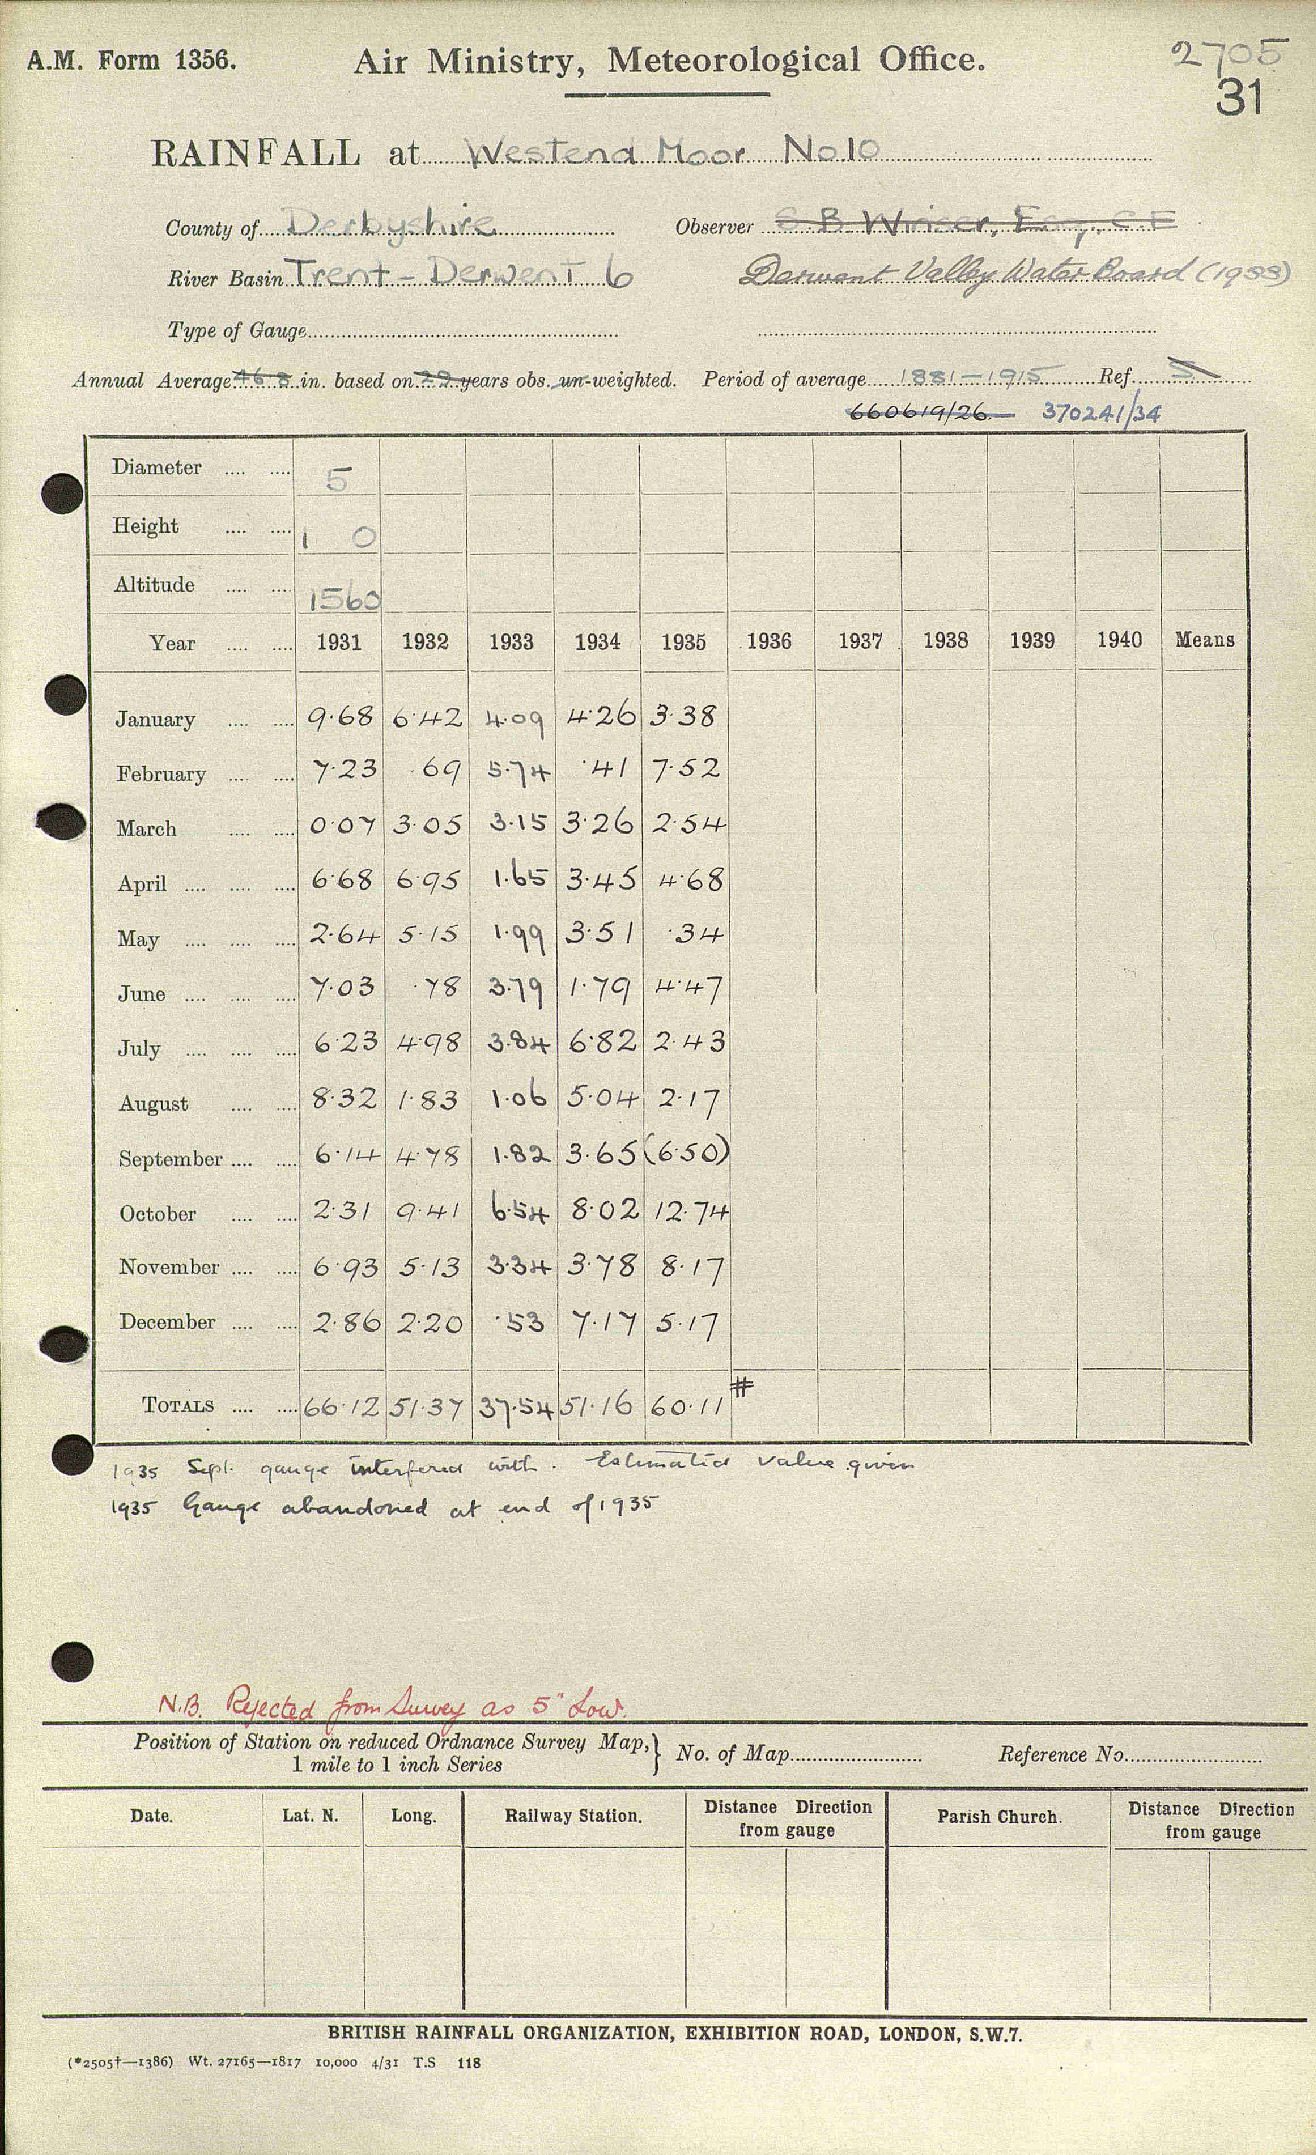 A.M. Form 1356.
Air Ministry, Meteorological Office.
2705
31
RAINFALL at Westend Moor No 10
County of Derbyshire Observer S B Winser, Esq., C.E
River Basin Trent - Derwent 6 Derwent Valley Water Board (1933)
Type of Gauge
Annual Average 46.8 in. based on 29 years obs. un-weighted. Period of average 1881-1915 Ref. 5
660619/26 370241/34
Diameter 5
Height 1 0
Altitude 1560
Year 1931 1932 1933 1934 1935 1936 1937 1938 1939 1940 Means
January 9.68 6.42 4.09 4.26 3.38
February 7.23 .69 5.74 .41 7.52
March 0.07 3.05 3.15 3.26 2.54
April 6.68 6.95 1.65 3.45 4.68
May 2.64 5.15 1.99 3.51 .34
June 7.03 .78 3.79 1.79 4.47
July 6.23 4.98 3.84 6.82 2.43
August 8.32 1.83 1.06 5.04 2.17
September 6.14 4.78 1.82 3.65 (6.50)
October 2.31 9.41 6.54 8.02 12.74
November 6.93 5.13 3.34 3.78 8.17
December 2.86 2.20 .53 7.17 5.17
TOTALS 66.12 51.37 37.54 51.16 60.11 #
1935 Sept. gauge interfered with. Estimated value given
1935 Gauge abandoned at end of 1935
N.B. Rejected from Survey as 5" Low.
Position of Station on reduced Ordnance Survey Map, } No. of Map Reference No.
1 mile to 1 inch Series
Date. Lat. N. Long. Railway Station. Distance Direction from gauge Parish Church. Distance Direction from gauge
BRITISH RAINFALL ORGANIZATION, EXHIBITION ROAD, LONDON, S.W.7.
(*2505†—1386) Wt. 27165—1817 10,000 4/31 T.S 118